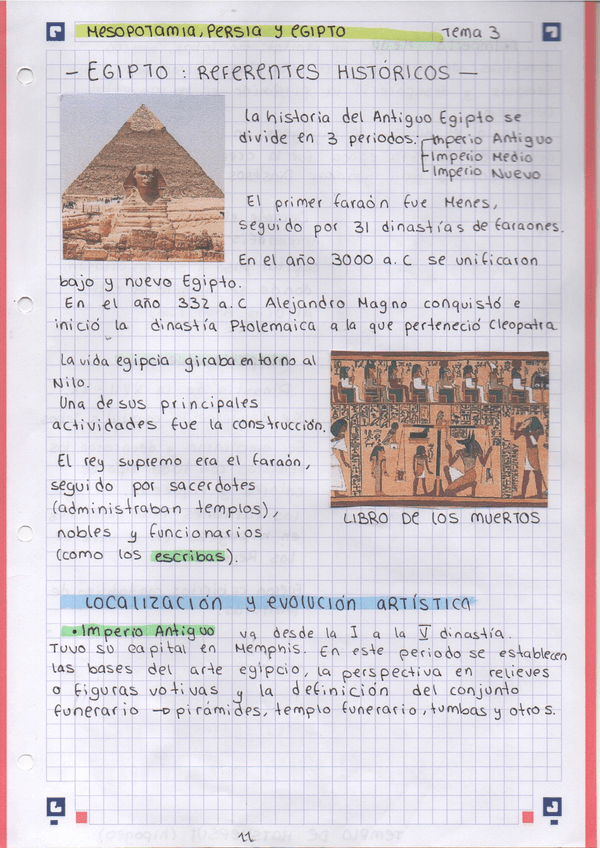 Mesopotamia, Persia y Egipto
Tema 3
- EGIPTO: REFERENTES HISTÓRICOS -
La historia del Antiguo Egipto se
divide en 3 periodos: Imperio Antiguo
Imperio Medio
Imperio Nuevo
El primer faraón fue Menes,
seguido por 31 dinastías de faraones.
En el año 3000 a.C se unificaron
bajo y nuevo Egipto.
En el año 332 a.C Alejandro Magno conquistó e
inició la dinastía Ptolemaica a la que perteneció Cleopatra
La vida egipcia giraba en torno al
Nilo.
Una de sus principales
actividades fue la construcción.
El rey supremo era el faraón,
seguido por sacerdotes
(administraban templos),
nobles y funcionarios
(como los escribas).
LIBRO DE LOS MUERTOS
LOCALIZACIÓN y EVOLUCIÓN ARTÍSTICA
• Imperio Antiguo va desde la I a la V dinastía.
Tuvo su capital en Memphis. En este periodo se establecen
las bases del arte egipcio, la perspectiva en relieves
o figuras votivas y la definición del conjunto
funerario → pirámides, templo funerario, tumbas y otros.
11